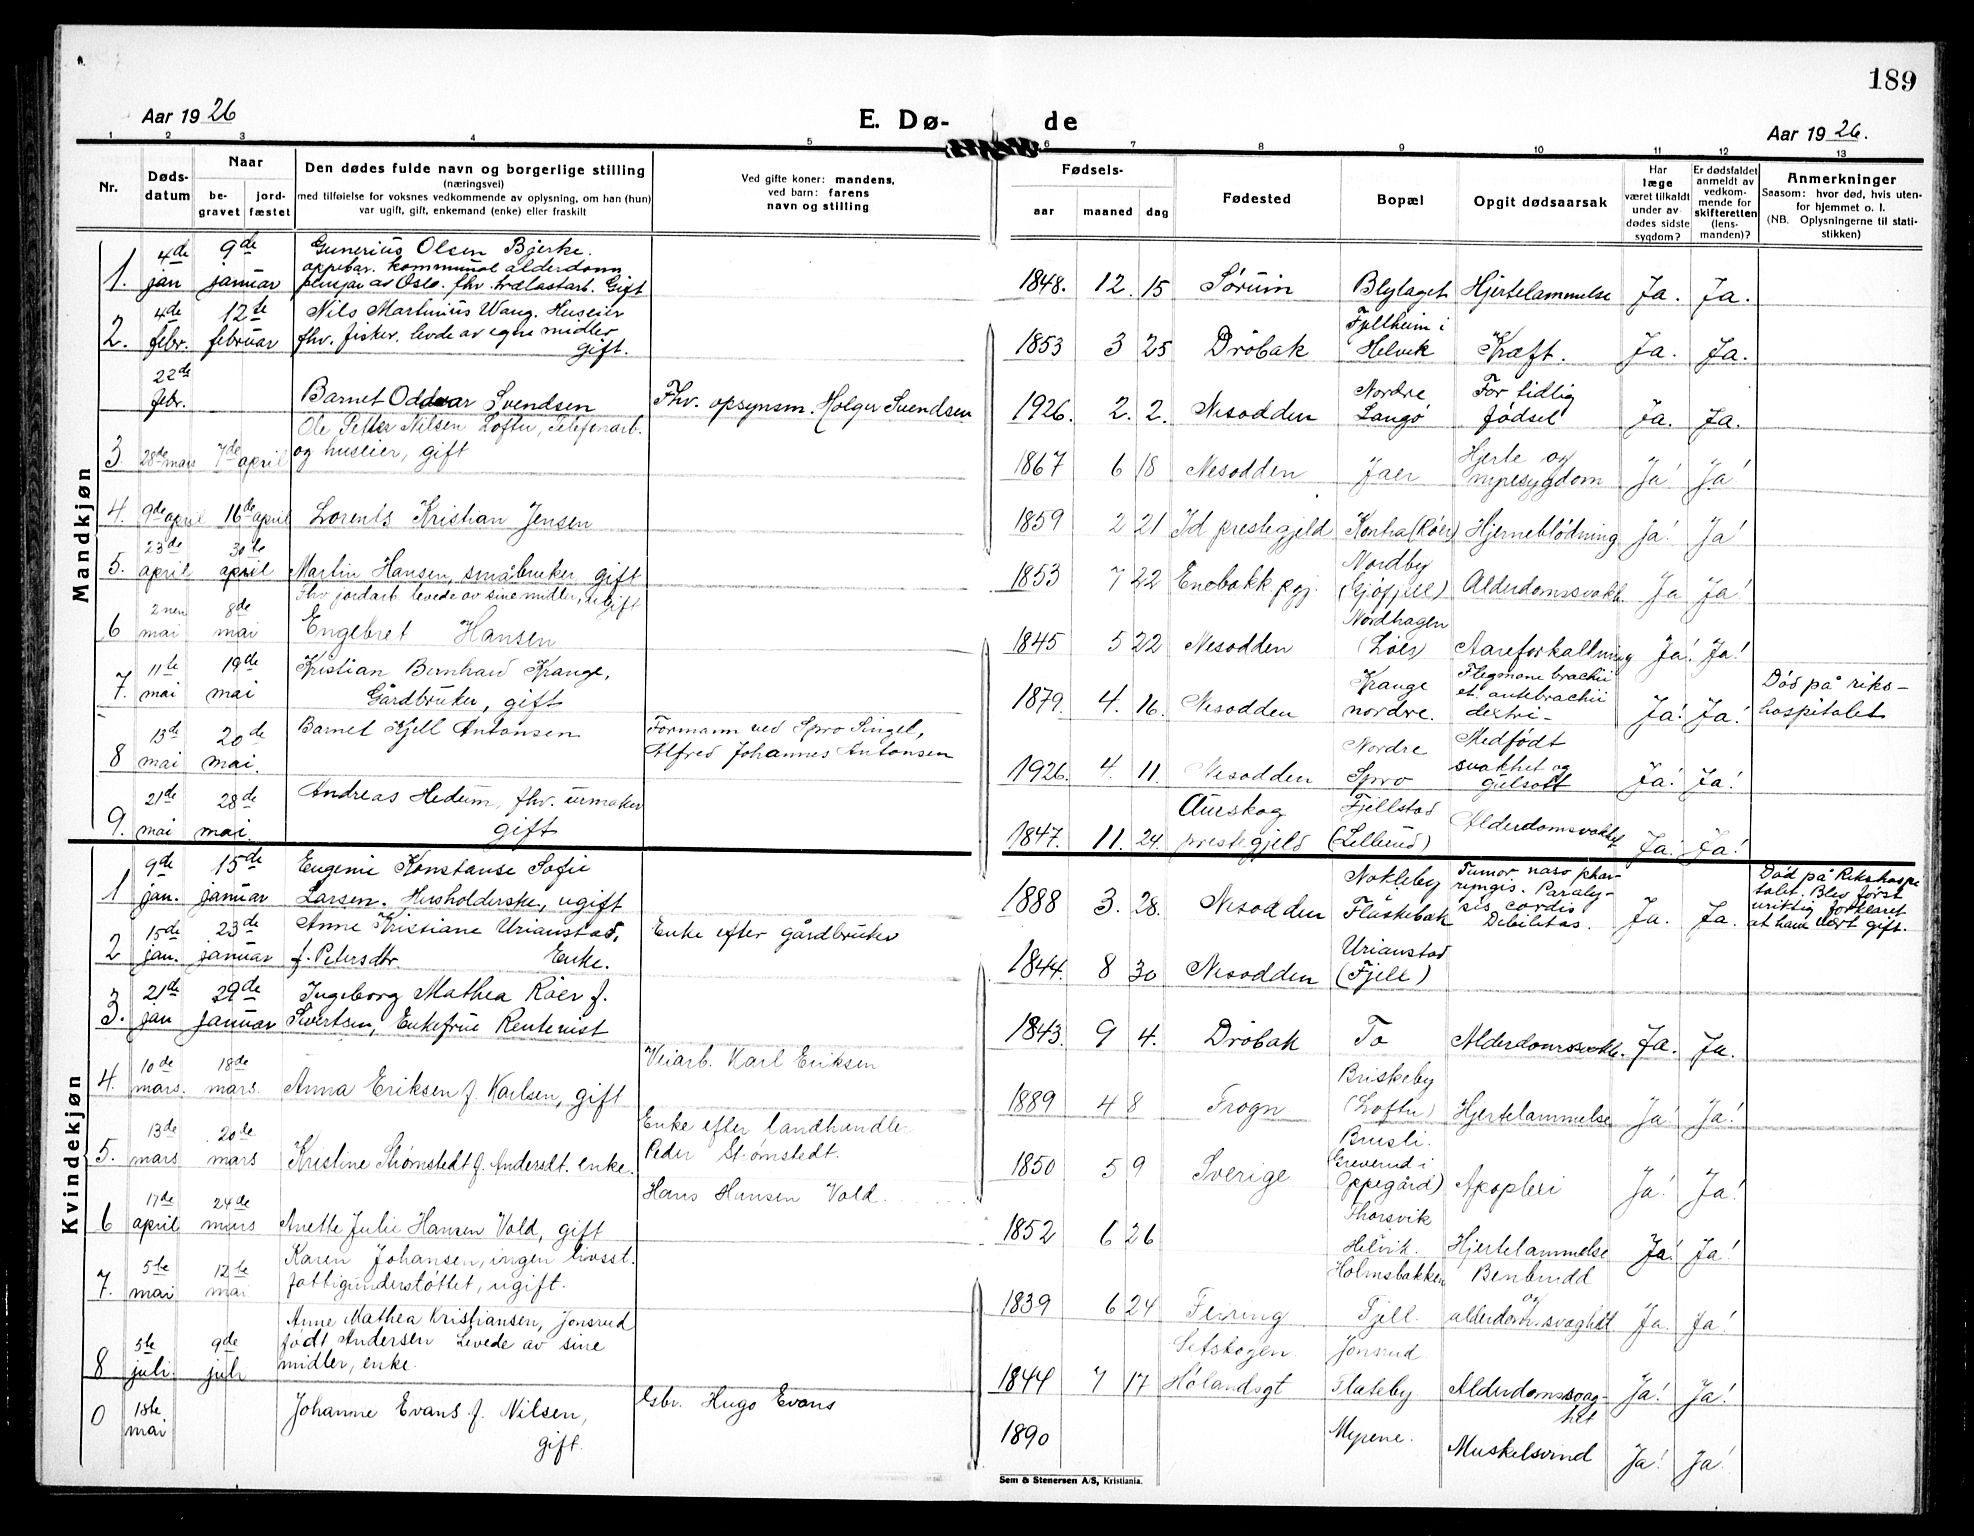 189
Aar 1926
E. Dø- de
Aar 1926.
1 2 3 4 5 6 7 8 9 10 11 12 13
Nr.
Døds-
datum
Naar
be-
gravet
jord-
fæstet
Den dødes fulde navn og borgerlige stilling
(næringsvei)
med tilføielse for voksnes vedkommende av oplysning, om han (hun)
var ugift, gift, enkemand (enke) eller fraskilt
Ved gifte koner: mandens,
ved barn: farens
navn og stilling
Fødsels-
aar maaned dag
Fødested
Bopæl
Opgit dødsaarsak
Har
læge
været tilkaldt
under av-
dødes sidste
sygdom?
Er dødsfaldet
anmeldt av
vedkom-
mende for
skifteretten
(lens-
manden)?
Anmerkninger
Saasom: hvor død, hvis uten-
for hjemmet o. l.
(NB. Oplysningerne til stati-
stikken)
Mandkjøn
1. 4de jan 9de januar Gunerius Olsen Bjerke.
oppebar. kommunal alderdoms
pensjon av Oslo. fhv. trælastarb. Gift
1848. 12. 15 Sørum Blylaget Hjertelammelse Ja. Ja.
2. 4de febr. 12te februar Nils Martinius Wang. Huseier
fhv. fisker. levde av egne midler
gift.
1853 3 25 Drøbak Fjellheim i
Helvik Kræft. Ja. Ja.
22de febr. Barnet Oddvar Svendsen Fhv. opsynsm. Holger Svendsen
1926. 2. 2. Nesodden Nordre
Langø For tidlig
fødsel Ja. Ja.
3 28de mars 7de april Ole Petter Nilsen Loftu, Telefonarb.
og huseier, gift
1867 6 18 Nesodden Jaer Hjerte og
nyresygdom Ja! Ja!
4. 9de april 16de april Lorents Kristian Jensen
1859 2 21 Id prestegjeld (Røer) Hjerneblødning Ja! Ja!
5. 23de april 30te april Martin Hansen, småbruker, gift
1853 7 22 Enebakk pgj. Nordby
Alderdomssvakh. Ja Ja!
6 2nen mai 8de mai Fhv jordarb. levede av sine midler, ugift
Engebret Hansen
1845 5 22 Nesodden Nordhagen
Aareforkalkning Ja! Ja!
7. 11te mai 19de mai Kristian Bernhard Krange,
Gårdbruker, gift
1879. 4. 16. Nesodden Krange
nordre. Flegmone brachii
et. antebrachii
dextri- Ja! Ja! Død på riks-
hospitalet
8 13de mai 20de mai. Barnet Kjell Antonsen Formann ved Spro Singel,
Alfred Johannes Antonsen
1926. 4. 11. Nesodden Nordre
Spro Medfødt
svakhet og
gulsott Ja! Ja!
9. 21de mai 28de mai. Andreas Hedum, fhv. urmaker
gift
1847. 11. 24. Aurskog
prestegjeld Fjellstad
Alderdomsvakhet Ja! Ja!
Kvindekjøn
1 9de jan. 15de januar Eugenie Konstanse Sofie
Larsen. Husholderske, ugift
1888 3. 28. Nesodden Nokleby
Flaskebæk Tumor naso phar-
ryngis. Paraly-
sis cordis
Debilitas. Ja. Ja. Død på Rikshospi
talet. Blev først
uriktig forklaret
at have vært gift.
2 15de jan. 23de januar Anne Kristiane Urianstad,
f. Petersdtr. Enke. Enke efter gårdbruker
1844. 8 30 Nesodden Urianstad
(Fjell)
3. 21de jan 29de januar Ingeborg Mathea Røer f.
Sivertsen, Enkefrue Rentenist
1843. 9 4. Drøbak To Alderdomssvakh. Ja. Ja.
4. 10de mars. 18de mars. Anna Eriksen f. Karlsen, gift Veiarb. Karl Eriksen
1889 4 8 Frogn Briskeby
(Loftu) Hjertelammelse Ja! Ja!
5. 13de mars 20de mars Kristine Strømstedt f. Andersdt. enke. Enke efter landhandle
Peder Strømstedt.
1850 5 9 Sverige Brusli.
(Greverud i
Oppegård) Apoplexi Ja! Ja!
6 17de april 24de mars Anette Julie Hansen Vold, gift Hans Hansen Vold
1852 6 26 Thorsvik
Helvik. Hjertelammelse Ja! Ja!
7. 5te mai 12te mai Karen Johansen, ingen livsst.
fattigunderstøttet, ugift.
1839 6 24 Feiring Holmsbakken
Fjell. Benbrudd
og
alderdom. svaghet Ja! Ja!
8 5te juli. 9de juli Anne Mathea Kristiansen, Jonsrud
født Andersen Levede av sine
midler, enke.
1844 7 17 Setskogen
Hølandsgt Jonsrud
Flateby Alderdomssvag-
het Ja! Ja!
0 18te mai Johanne Evans f. Nilsen,
gift. Gsbr. Hugo Evans
1890 Myrene. Muskelsvind Ja! Ja!
Sem & Stenersen A/S, Kristiania.